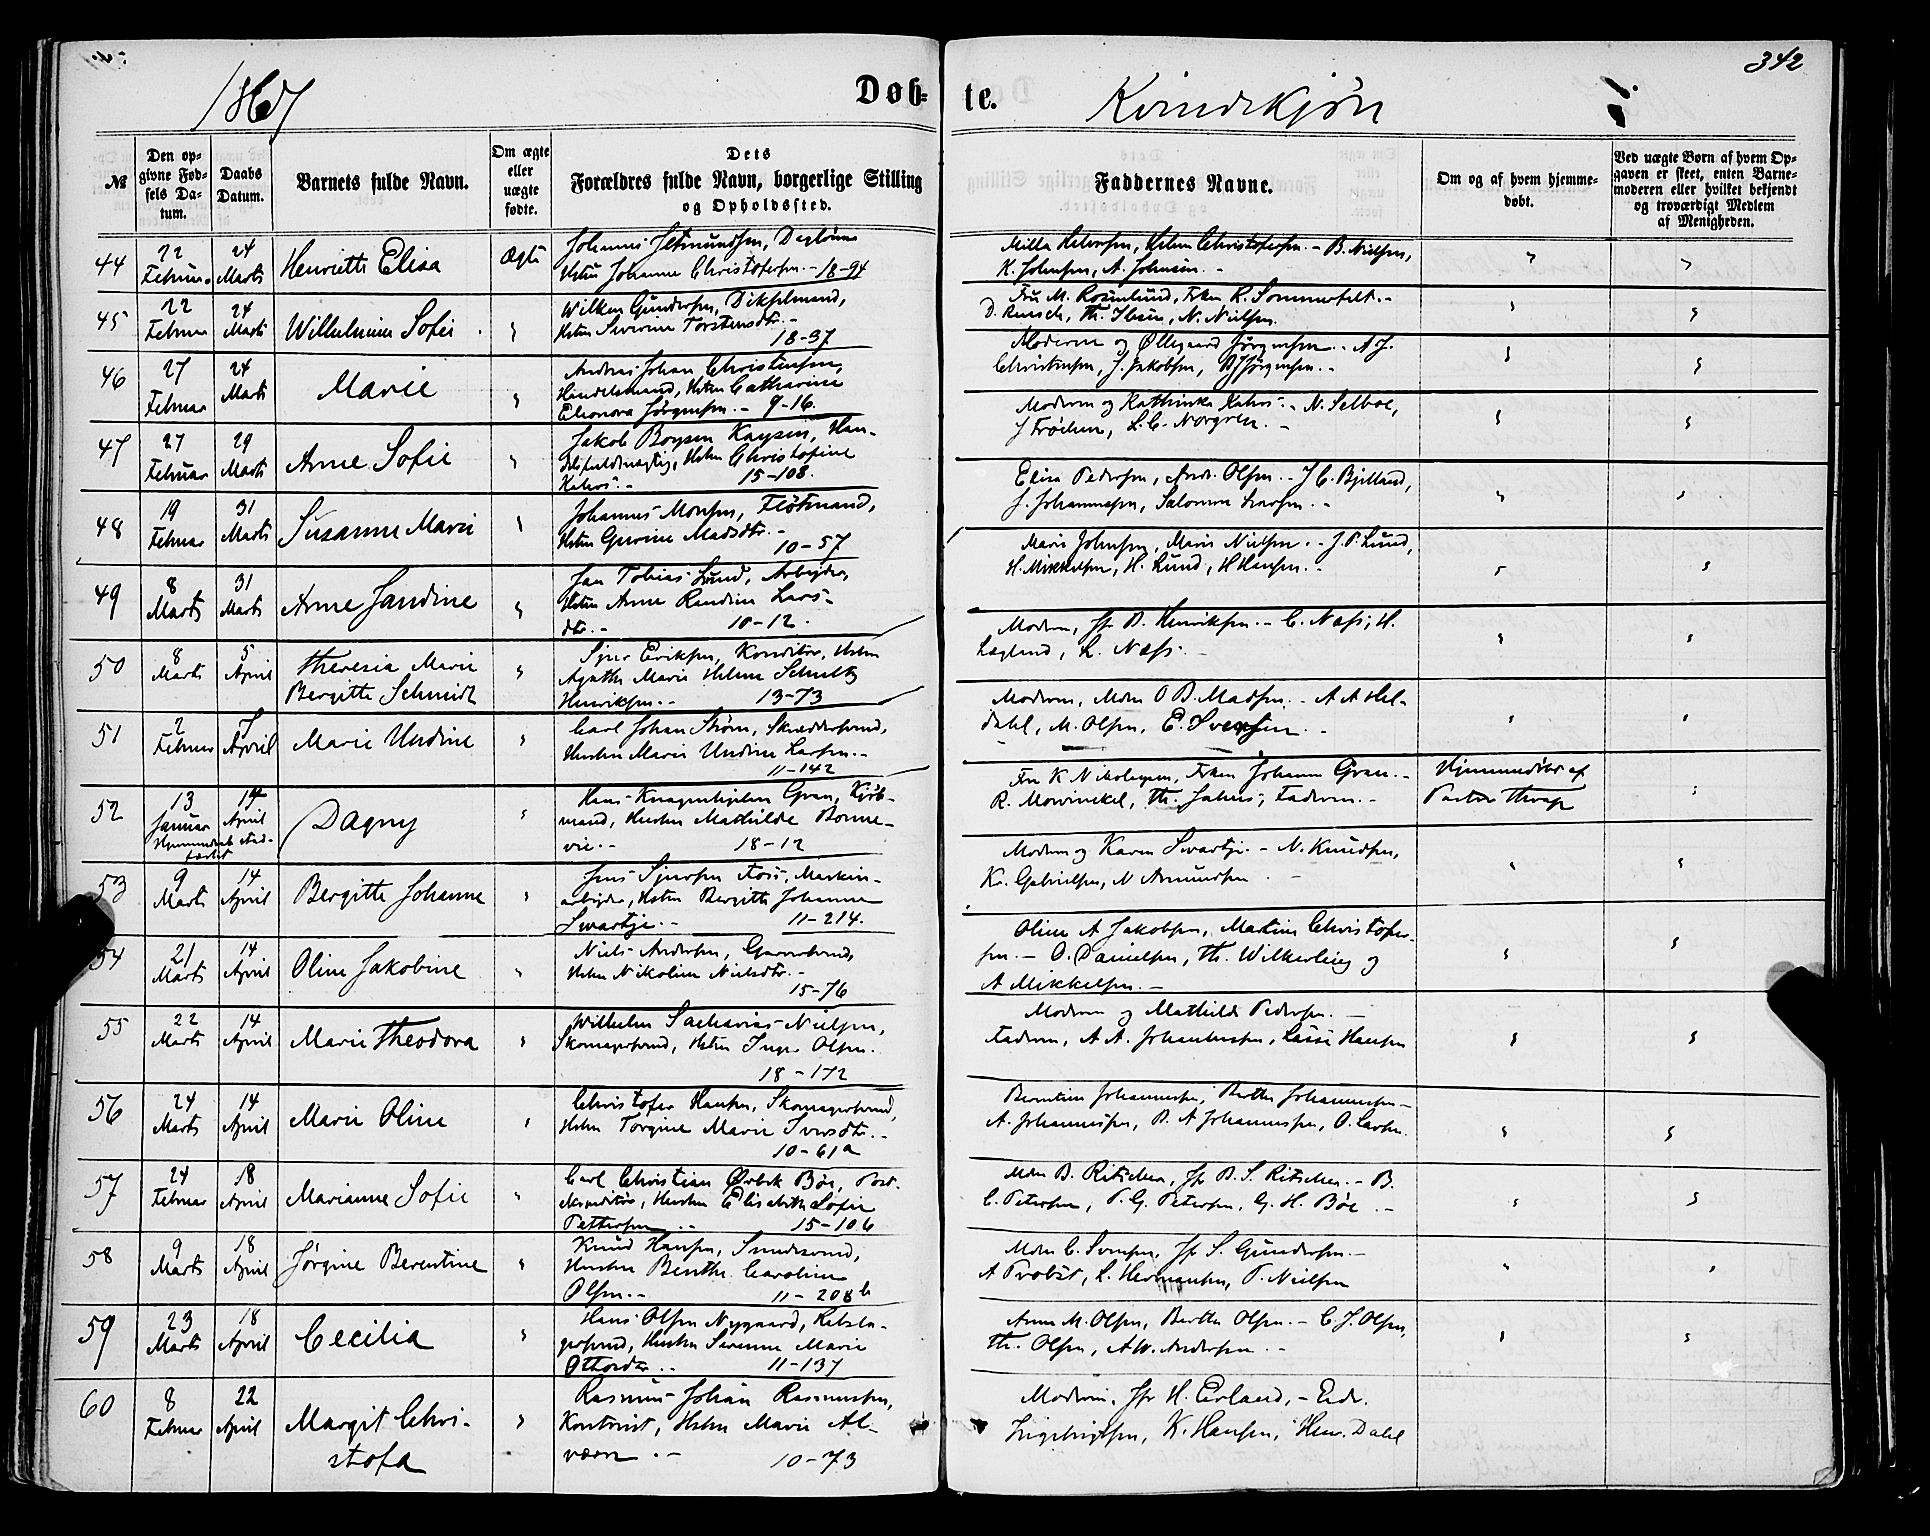 342
1867
Døb-
te.
Kvindekjøn
№
Den op-
givne Fød-
sels Da-
tum.
Daabs
Datum.
Barnets fulde Navn.
Om ægte
eller
uægte
fødte.
Dets
Forældres fulde Navn, borgerlige Stilling
og Opholdssted.
Faddernes Navne.
Om og af hvem hjemme-
døbt.
Ved uægte Børn af hvem Op-
gaven er skeet, enten Barne-
moderen eller hvilket bekjendt
og troværdigt Medlem
af Menigheden.
44
22
Februar
24
Marts
Henriette Elisa
Ægte
Hstru Johanne Christofersen.- 18-94
K. Johnsen, A. Johnsen.-
45
22
Februar
24
Marts
Wilhelmine Sofie
Wilken Gundersen,
Torstensdtr.-
18-37
Fru M. Rosenlund, Frkn R. Sommerfelt.-
Th. Ibsen, N. Nielsen.
46
27
Februar
24
Marts
Marie
Andreas Johan Christensen,
Handelsmand, Hstru Catharine
Eleonora Jørgensen.- 9-16.
Moderen og Ellegaard Jørgensen.- A J.
Christensen, J. Jakobsen, Jørgensen.-
47
27
Februar
29
Marts
Anne Sofie
Jakob Boysen Kaysen, Han-
Hstru Christofine
15-108.
Moderen og Kathinka
L. C. Norgren.-
48
19
Februar
31
Marts
Susanne Marie
Johannes Monsen, Fløtmand,
Hstru Gurine Madsdtr.-
10-57
Elisa Pedersen, Andr. Olsen.- J C. Bjelland,
J. Johannesen, Salomon Larsen.-
49
8
Marts
31
Marts
Anne Jandine
Jan Tobias Lund, Arbeider,
Hstru Anne Randine Lars-
dtr.-
10-12.
Marie Johnsen, Maria Nielsen.- J. P. Lund,
H. Mikkelsen, H. Lund, H Hansen.-
50
8
Marts
5
April
Theresia Marie
Bergitte Schmidt
Sjur Eriksen, Konditor, Hstru
Agathe Marie Helene Schultz
Henriksen.-
13-73
Moderen, Jfr B. Henriksen.- C. Næss, H.
L. Næss.-
51
2
Februar
7
April
Marie Undine
Carl Johan Strøm, Skræddersvend,
Hustru Marie Undine Larsen.-
11-142
Moderen, Mdm O B. Madsen.- A A Hel-
dahl, M. Olsen, E. Iversen.-
52
13
Januar
14
April
Dagny
Hans Knagenhjelm Gran, Kjøb-
mand, Hustru Mathilde Bonne-
vie.-
18-12
Fru K Nikolaysen, Frkn Johanne Gran.-
R. Mowinckel, Th. Jahns, Faderen.-
Hjemmedøbt af
Pastor Thrap
53
9
Marts
14
April
Bergitte Johanne
Jens Sjursen Foss, Maskin-
arbeider, Hstru Bergitte Johanne
Svartje.-
11-214.
Moderen og Karen Svartje.- N. Knudsen,
Kr. Gabrielsen, N Amundsen
54
21
Marts
14
April
Oline Jakobine
Niels Andersen, Garversvend,
Hstru Nikoline Nielsdtr.-
15-76
Oline A Jakobsen, Martine Christofer-
sen.- O. Danielsen, Th. Wilkerling og
A Mikkelsen.-
55
22
Marts
14
April
Marie Theodora
Wilhelm Sacharias Nielsen,
Skomagersvend, Hstru Inger Olsen.
18-172
Moderen og Mathilde Pedersen.-
Faderen, A A. Johannesen, Lasse Hansen
56
24
Marts
14
April
Marie Oline
Christofer Hansen, Skomagersvend,
Hstru Torgine Marie Iversdtr.-
10-61a
Berentine Johannesen, Berthe Johannesen-
A. Johannesen, B. A Johannesen, O. Larsen.
57
24
Februar
18
April
Marianne Sofie
Carl Christian Ørbek Bøe, Post-
Hustru Elisabeth Sofie
Pettersen.-
15-106
Mdm B. Ritschen, Jfr B. S. Ritschen.- B.
C. Petersen, P. G. Petersen, G. H. Bøe.-
58
9
Marts
18
April
Jørgine Berentine
Knud Hansen, Smedesvend,
Hustru Benthe Caroline
Olsen.-
11-208b
Mdm C. Svensen, Jfr S. Gundersen.-
A Probst, L. Hermansen, P. Nielsen
59
23
Marts
18
April
Cecilia
Hans Olsen Nygaard, Rebsla-
gersvend, Hustru Severine Marie
Ottosdtr.-
11-137
Anne M. Olsen, Berthe Olsen.- C. J. Olsen,
Th. Olsen, A W. Andersen.-
60
8
Februar
22
April
Margit Chri-
stofa
Rasmus Johan Rasmussen,
Kontorist, Hstru Marie Al-
værn.-
10-73
Moderen, Jfr H. Erland,- Edv.
Ingebrigtsen, K. Hansen, Henr. Dahl